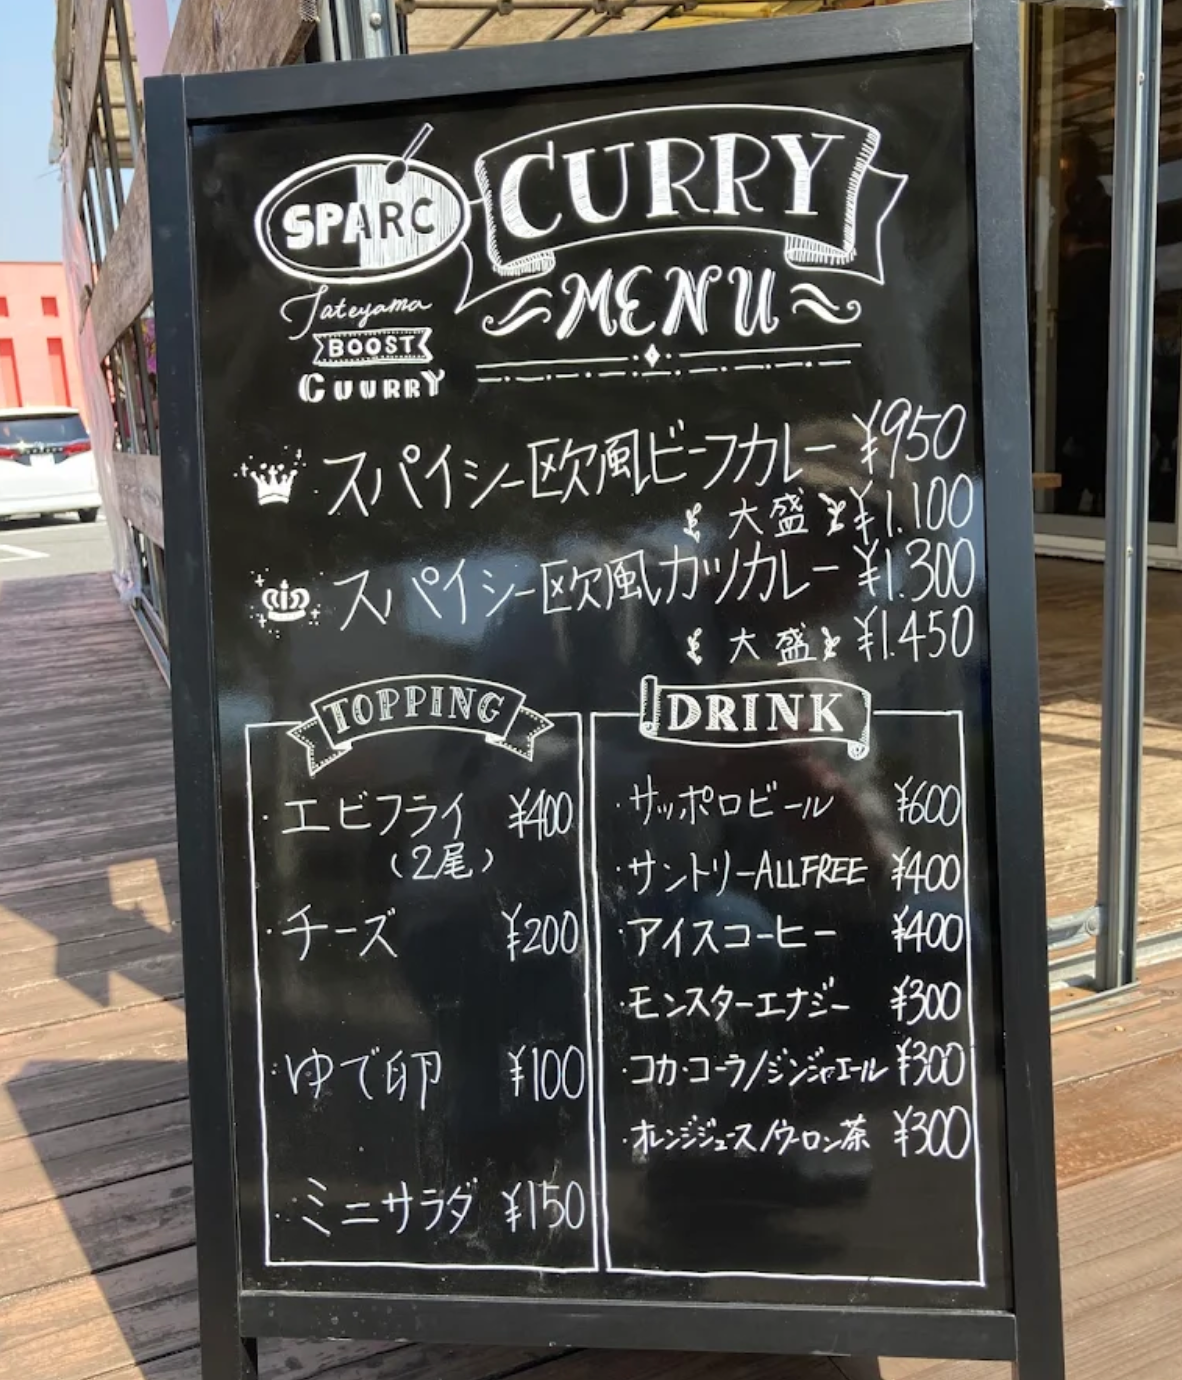 SPARC
CURRY
MENU
Tateyama
BOOST
CUURRY
スパイシー欧風ビーフカレー ¥950
大盛 ¥1.100
スパイシー欧風カツカレー ¥1.300
大盛 ¥1.450
TOPPING
・エビフライ ¥400
(2尾)
・チーズ ¥200
・ゆで卵 ¥100
・ミニサラダ ¥150
DRINK
・サッポロビール ¥600
・サントリーALLFREE ¥400
・アイスコーヒー ¥400
・モンスターエナジー ¥300
・コカ・コーラ/ジンジャエール ¥300
・オレンジジュース/ウーロン茶 ¥300